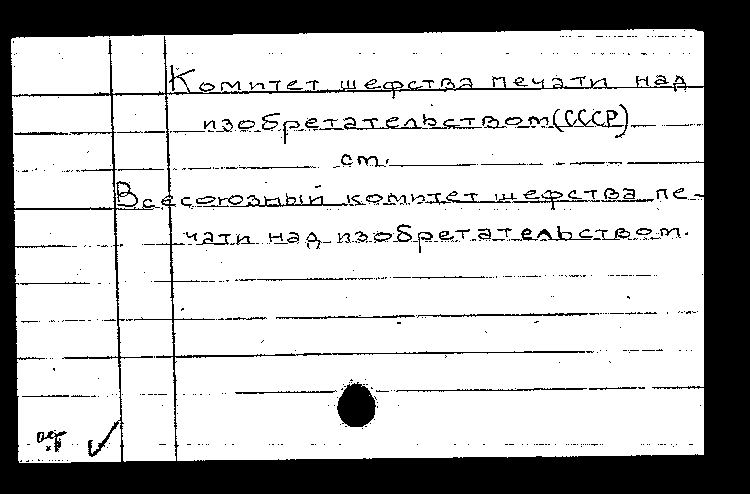 Комитет шефства печати над
изобретательством(СССР)
см.
Всесоюзный комитет шефства пе-
чати над изобретательством.